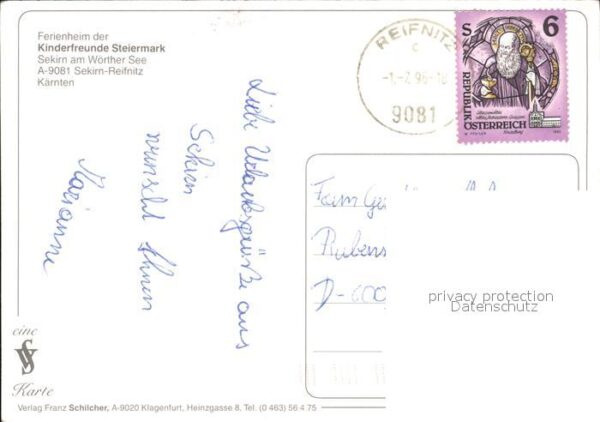 Ferienheim der
Kinderfreunde Steiermark
Sekirn am Wörther See
A-9081 Sekirn-Reifnitz
Kärnten
REIFNITZ
c
9081
S 6
REPUBLIK
ÖSTERREICH
Liebe Urlaubsgrüße aus
Sekirn
wünscht Ihnen
Marianne
Fam
Rubens
D-600
privacy protection
Datenschutz
eine
Karte
Verlag Franz Schilcher, A-9020 Klagenfurt, Heinzgasse 8, Tel. (0 463) 56 4 75